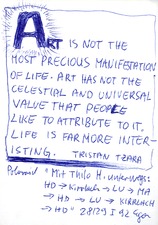 ART IS NOT THE
MOST PRECIOUS MANIFESTATION
OF LIFE. ART HAS NOT THE
CELESTIAL AND UNIVERSAL
VALUE THAT PEOPLE
LIKE TO ATTRIBUTE TO IT.
LIFE IS FAR MORE INTER-
ISTING. TRISTAN TZARA
"Mit Thilo H. unterwegs:
HD → Kirrlach → LU → MA
→ HD → LU → KIRRLACH
→ HD" 28/29 I 92